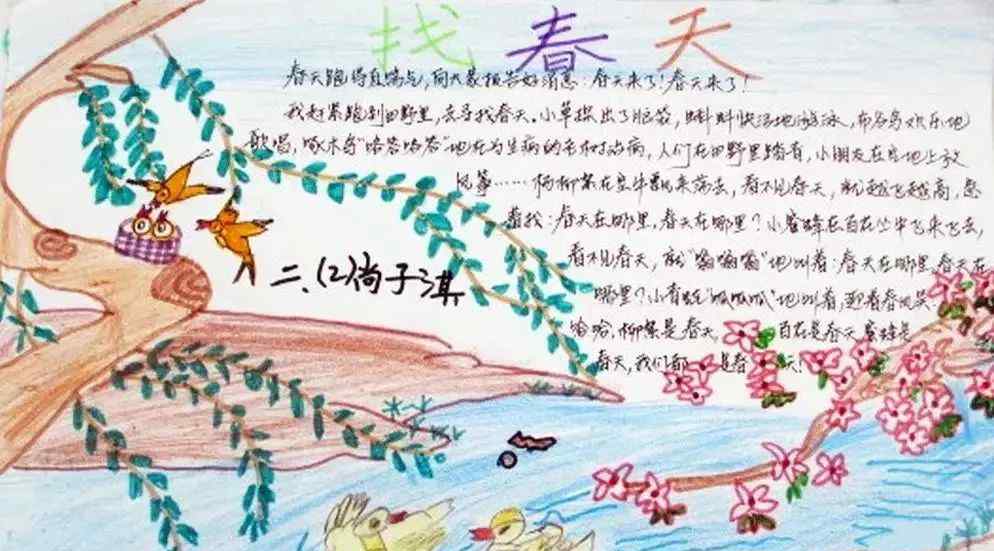 找春天
春天跑得直喘气,向大家报告好消息:春天来了!春天来了!
我赶紧跑到田野里,去寻找春天。小草探出了脑袋,蝌蚪快活地游泳,布谷鸟欢乐地
歌唱,啄木鸟“咯答咯答”地在为生病的老树治病,人们在田野里踏青,小朋友在空地上放
风筝……杨柳絮在空中飘来荡去,看不见春天,就越飞越高,急
着找:春天在哪里,春天在哪里?小蜜蜂在百花丛中飞来飞去,
看不见春天,就“嗡嗡嗡”地叫着:春天在哪里,春天在
哪里?小青蛙“呱呱呱”地叫着,迎着春风笑:
哈哈,柳絮是春天,百花是春天,蜜蜂是
春天,我们都是春天!
二、(2)尚子淇